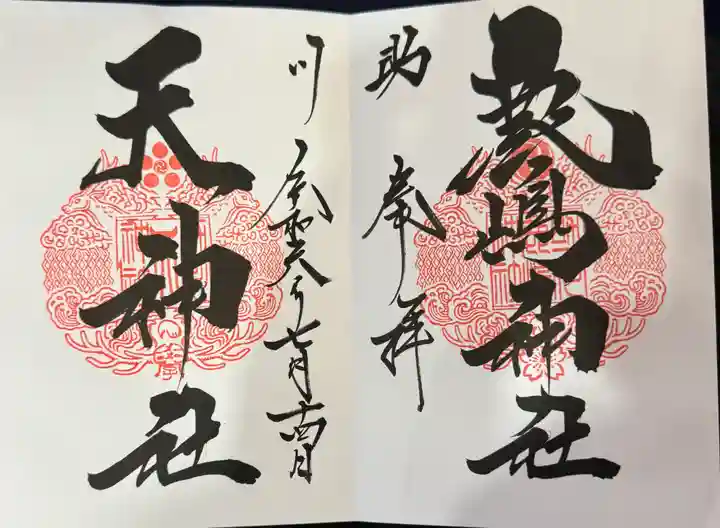 嚴嶋神社
助
奉拝
川
令和六年七月十四日
天神社